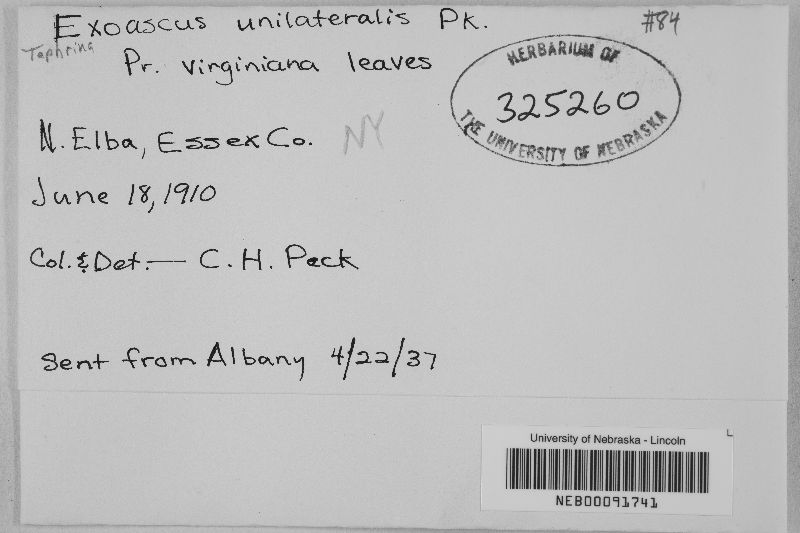 Exoascus unilateralis Pk.
#84
Taphrina
Pr. virginiana leaves
HERBARIUM OF
325260
THE UNIVERSITY OF NEBRASKA
N. Elba, Essex Co. NY
June 18, 1910
Col. & Det. — C. H. Peck
Sent from Albany 4/22/37
University of Nebraska - Lincoln
NEB00091741